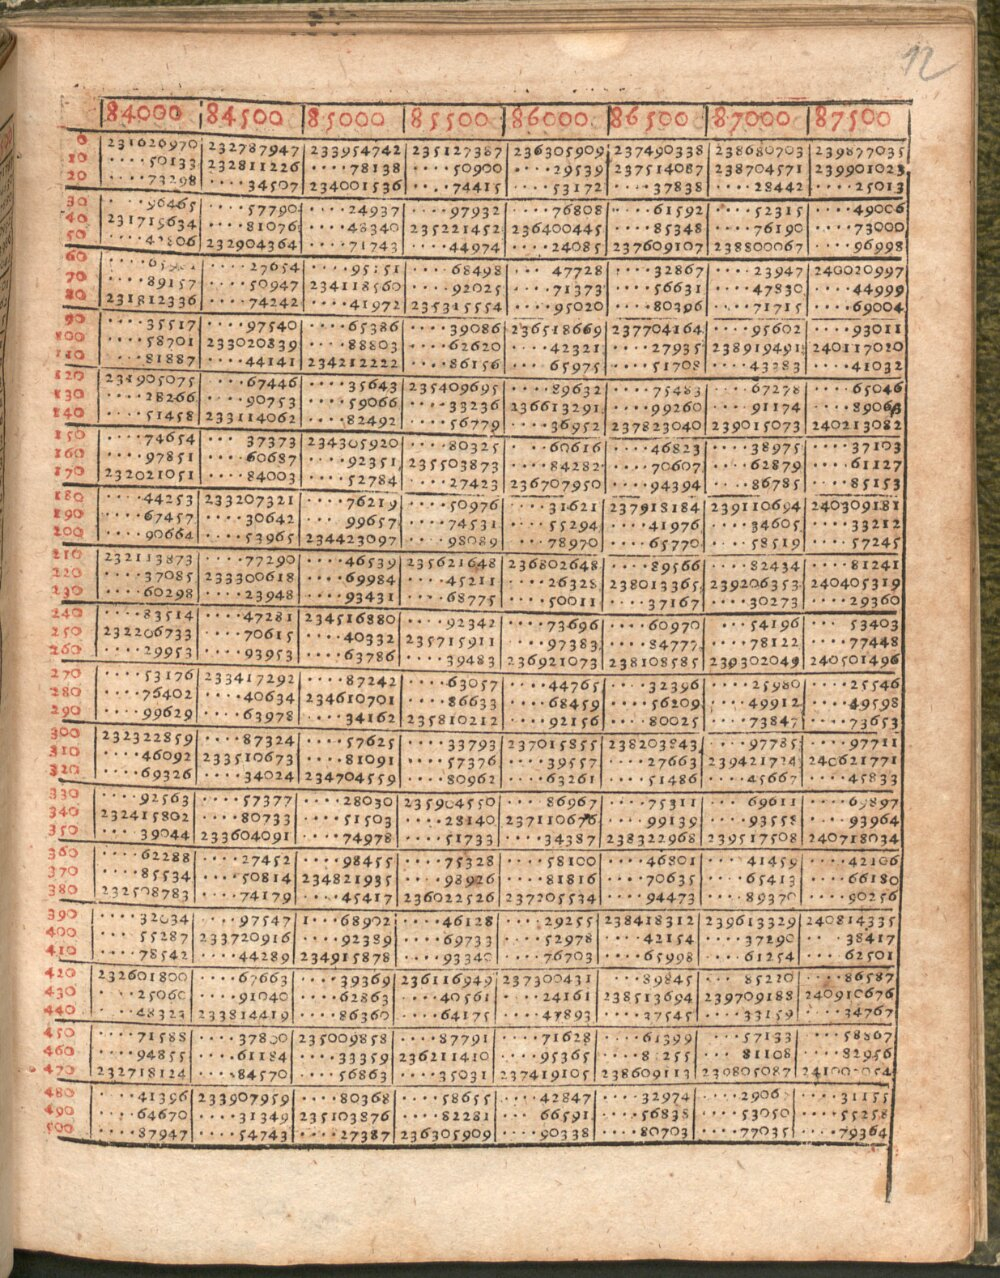 12
84000 84500 85000 85500 86000 86500 87000 87500
0 231620970 232787947 233954742 235127387 236305909 237490338 238680703 239877035
10 ····50133 232811226 ····78138 ····50900 ····29539 237514087 238704571 239901023
20 ····73298 ····34507 234001536 ····74415 ····53172 ····37838 ····28442 ····25013
30 ····96465 ····57790 ····24937 ····97932 ····76808 ····61592 ····52315 ····49006
40 231715634 ····81076 ····48340 235221452 236400445 ····85348 ····76190 ····73000
50 ····42806 232904364 ····71743 ····44974 ····24085 237609107 238800067 ····96998
60 ····27654 ····95151 ····68498 ····47728 ····32867 ····23947 240020997
70 ····89157 ····50947 234118560 ····92025 ····71373 ····56631 ····47830 ····44999
80 231812336 ····74242 ····41972 235315554 ····95020 ····80396 ····71715 ····69004
90 ····35517 ····97540 ····65386 ····39086 236518669 237704164 ····95602 ····93011
100 ····58701 233020839 ····88803 ····62620 ····42321 ····27935 238919491 240117020
110 ····81887 ····44141 234212222 ····86156 ····65975 ····51708 ····43283 ····41032
120 231905075 ····67446 ····35643 235409695 ····89632 ····75483 ····67278 ····65046
130 ····28266 ····90753 ····59066 ····33236 236613291 ····99260 ····91174 ····89063
140 ····51458 233114062 ····82492 ····56779 ····36952 237823040 239015073 240213082
150 ····74654 ··· 37373 234305920 ····80325 ····60616 ····46823 ····38975 ····37103
160 ····97851 ····60687 ····92351 235503873 ····84282 ····70607 ····62879 ····61127
170 232021051 ····84003 ····52784 ····27423 236707950 ····94394 ····86785 ····85153
180 ····44253 233207321 ····76219 ····50976 ····31621 237918184 239110694 240309181
190 ····67457 ····30642 ····99657 ····74531 ····55294 ····41976 ····34605 ····33212
200 ····90664 ····53965 234423097 ····98089 ····78970 ····65770 ····58519 ····57245
210 232113873 ····77290 ····46539 235621648 236802648 ····89566 ····82434 ····81241
220 ····37085 233300618 ····69984 ····45211 ····26328 238013365 239206353 240405319
230 ····60298 ····23948 ····93431 ····68775 ····50011 ····37167 ····30273 ····29360
240 ····83514 ····47281 234516880 ····92342 ····73696 ····60970 ····54196 ····53403
250 232206733 ····70615 ····40332 235715911 ····97383 ····84777 ····78122 ····77448
260 ····29953 ····93953 ····63786 ····39483 236921073 238108585 239302049 240501496
270 ····53176 233417292 ····87242 ····63057 ····44765 ····32396 ····25980 ····25546
280 ····76402 ····40634 234610701 ····86633 ····68459 ····56209 ····49912 ····49598
290 ····99629 ····63978 ····34162 235810212 ····92156 ····80025 ····73847 ····73653
300 232322859 ····87324 ····57625 ····33793 237015855 238203843 ····97785 ····97711
310 ····46092 233510673 ····81091 ····57376 ····39557 ····27663 239421724 240621771
320 ····69326 ····34024 234704559 ····80962 ····63261 ····51486 ····45667 ····45833
330 ····92563 ····57377 ····28030 235904550 ····86967 ····75311 ····69611 ····69897
340 232415802 ····80733 ····51503 ····28140 237110676 ····99139 ····93558 ····93964
350 ····39044 233604091 ····74978 ····51733 ····34387 238322968 239517508 240718034
360 ····62288 ····27452 ····98455 ····75328 ····58100 ····46801 ····41459 ····42106
370 ····85534 ····50814 234821935 ····98926 ····81816 ····70635 ····65413 ····66180
380 232508783 ····74179 ····45417 236022526 237205534 ····94473 ····89370 ····90256
390 ····32034 ····97547 ····68902 ····46128 ····29255 238418312 239613329 240814335
400 ····55287 233720916 ····92389 ····69733 ····52978 ····42154 ····37290 ····38417
410 ····78542 ····44289 234915878 ····93340 ····76703 ····65998 ····61254 ····62501
420 232601800 ····67663 ····39369 236116949 237300431 ····89845 ····85220 ····86587
430 ····25060 ····91040 ····62863 ····40561 ····24161 238513694 239709188 240910676
440 ····48323 233814419 ····86360 ····64175 ····47893 ····37545 ····33159 ····34767
450 ····71588 ····37800 235009858 ····87791 ····71628 ····61399 ····57133 ····58867
460 ····94855 ····61184 ····33359 236211410 ····95365 ····81108 ····82956
470 232718124 ····84570 ····56863 ····35031 237419105 238609113 230805087
480 ····41396 233907959 ····80368 ····58655 ····42847 ····32974 ····31155
490 ····64670 ····31349 235103876 ····82281 ····66591 ····56838 ····53050 ····55258
500 ····87947 ····54743 ····27387 236305909 ····90338 ····80703 ····77035 ····79364